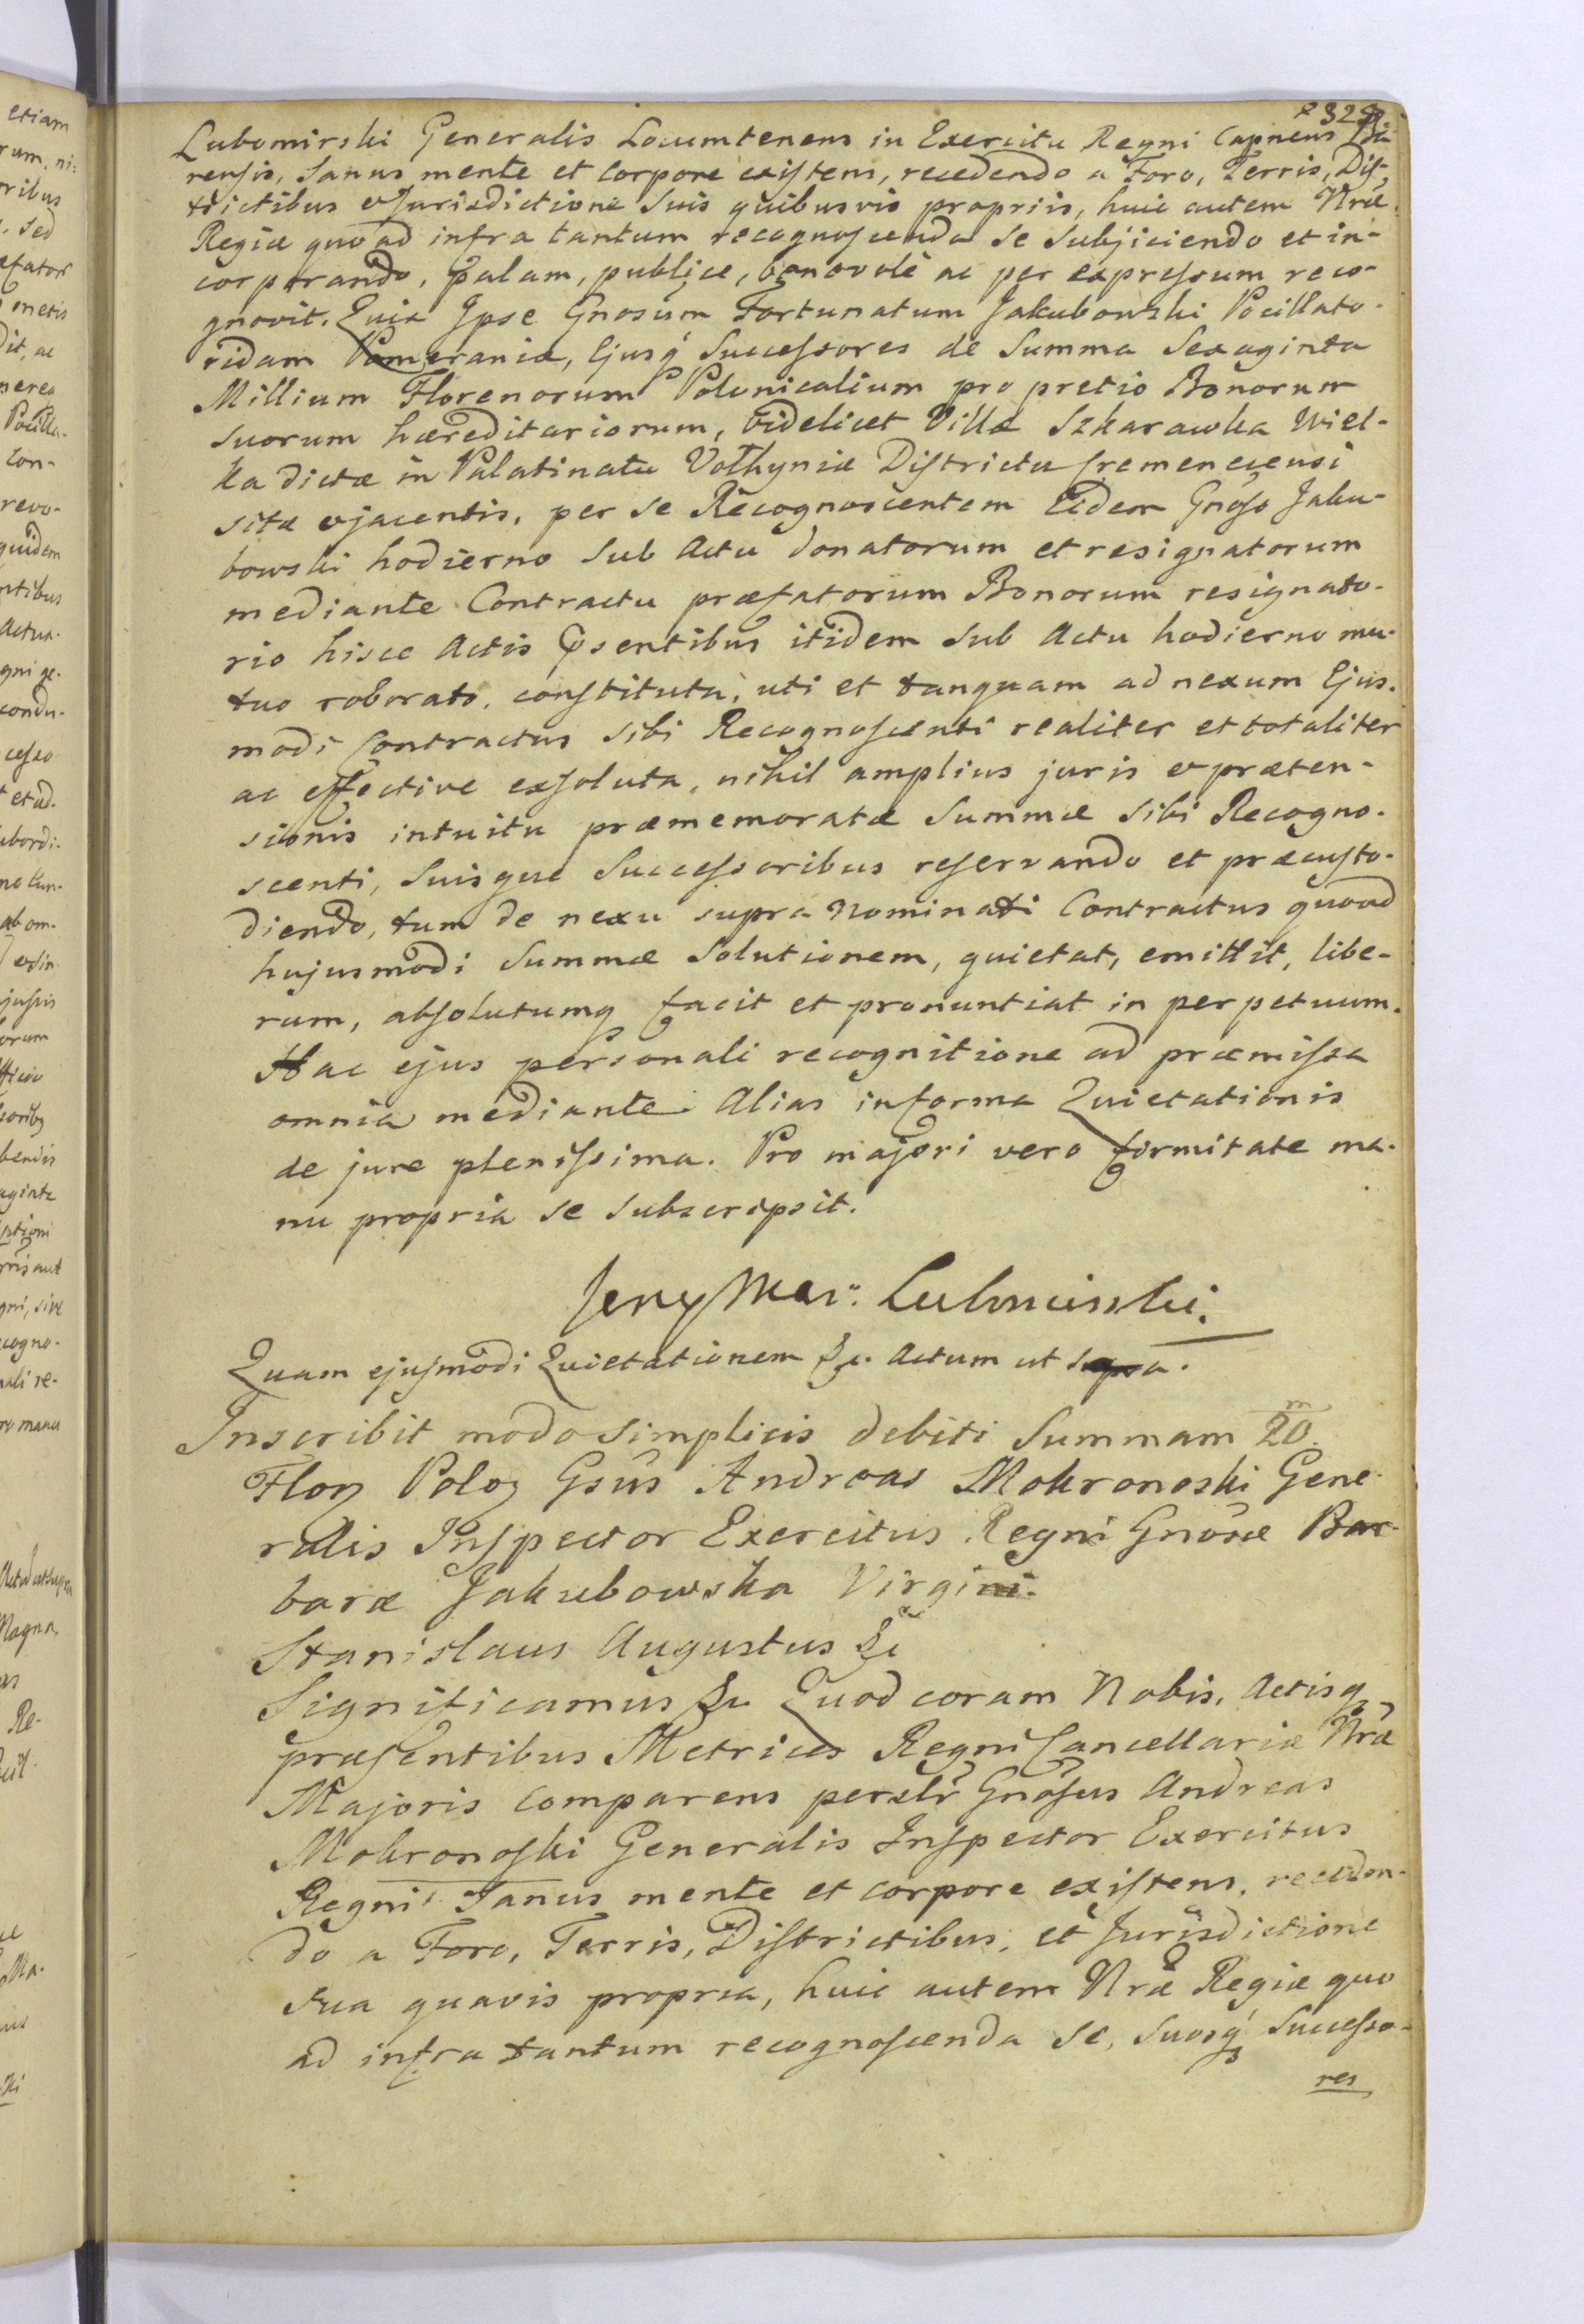 329.
Lubomirski Generalis Locumtenens in Exercitu Regni Capneus
rensis, Sanus mente et Corpore existens, recedendo a Foro, Terris, Dis-
trictibus et Jurisdictione Suis quibusvis propriis, huic autem Nrae
Regiae quo ad infra tantum recognoscenda Se Subjiciendo et in-
corporando, palam, publice, benevole ac per expressum reco-
gnovit. Quia Ipse Gnosum Fortunatum Jakubowski Pocillato-
ridam Pomeraniae, Ejusq́ Successores de Summa Sexaginta
Millium Florenorum Polonicalium pro pretio Bonorum
Suorum haereditariorum, videlicet Villae Szkarawka Wiel-
ka dictae in Palatinatu Volhyniae Districtu Cremenecensi
sitae et jacentis, per Se Recognoscentem Eidem Gnoso Jaku-
bowski hodierno Sub Actu donatorum et resignatorum
mediante Contractu praefatorum Bonorum resignato-
rio hisce Actis psentibus itidem Sub Actu hodierno mu-
tuo roborato, constituta, uti et tanquam ad nexum Ejus-
modi Contractus Sibi Recognoscenti realiter et totaliter
ac effective exsoluta, nihil amplius juris et praeten-
sionis intuitu praememoratae Summae Sibi Recogno-
scenti, Suisque Successoribus reservando et praecusto-
diendo, tum de nexu supra nominati Contractus quoad
hujusmodi Summae Solutionem, quietat, emittit, libe-
rum, absolutumq facit et pronuntiat in perpetuum.
Hac ejus personali recognitione ad praemissa
omnia mediante Alias in forma Quietationis
de jure plenissima. Pro majori vero firmitate ma-
nu propria se subscripsit.
Jerzy Mar: Lubomirski.
Quam ejusmodi Quietationem &c. Actum ut supra.
Inscribit modo simplicis debiti Summam 20 m
Flor Polo Gsus Andreas Mokronoski Gene-
ralis Inspector Exercitus Regni Gnosae Bar-
barae Jakubowska Virgini.
Stanislaus Augustus &c
Significamus &c Quod coram Nobis, Actisq
praesentibus Metrices Regni Cancellariae Nrae
Majoris comparens persltr Gnosus Andreas
Mokronoski Generalis Inspector Exercitus
Regni Sanus mente et corpore existens, receden-
do a Foro, Terris, Districtibus, et Jurisdictione
sua quavis propria, huic autem Nrae Regiae quo
ad infra tantum recognoscenda Se, Suosq́ Successo-
res